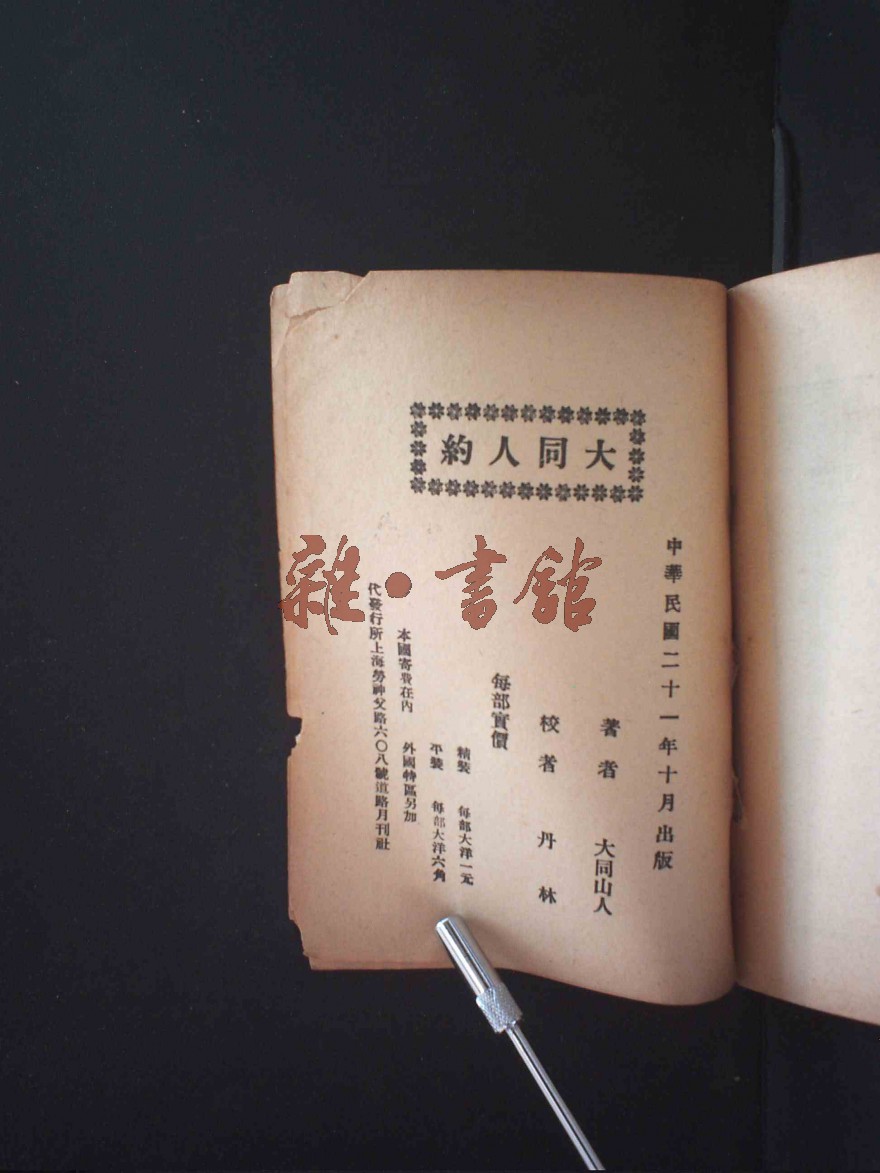 大同人約
中華民國二十一年十月出版
著者 大同山人
校者 丹林
每部實價
精裝 每部大洋一元
平裝 每部大洋六角
本國寄費在內 外國特區另加
代發行所上海勞神父路六〇八號道路月刊社
雜·書館